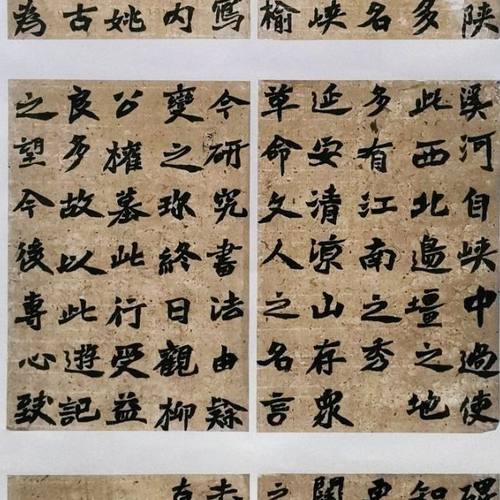 陕
多
名
峡
榆
内
姚
古
為
溪河自峡中過使
此西北邊壃之地
多有江南之秀
延安清凉山存衆
革命文人之名言
今研究書法由隸
變之珎終日觀柳
公權墓此行受益
良多故以此遊記
之望今後專心致